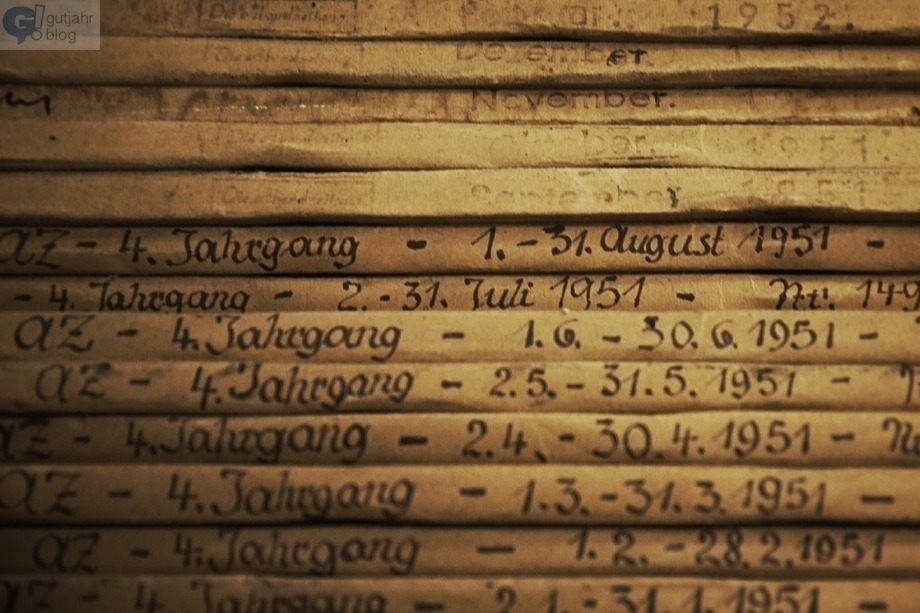 gutjahr
blog
1952.
Dezember.
November.
1951.
September 1951
AZ - 4. Jahrgang - 1. - 31. August 1951 -
- 4. Jahrgang - 2. - 31. Juli 1951 - Nr. 149
AZ - 4. Jahrgang - 1. 6. - 30. 6. 1951 -
AZ - 4. Jahrgang - 2. 5. - 31. 5. 1951 -
AZ - 4. Jahrgang - 2. 4. - 30. 4. 1951 -
AZ - 4. Jahrgang - 1. 3. - 31. 3. 1951 -
AZ - 4. Jahrgang - 1. 2. - 28. 2. 1951
AZ - 4. Jahrgang - 2. 1. - 31. 1. 1951 -